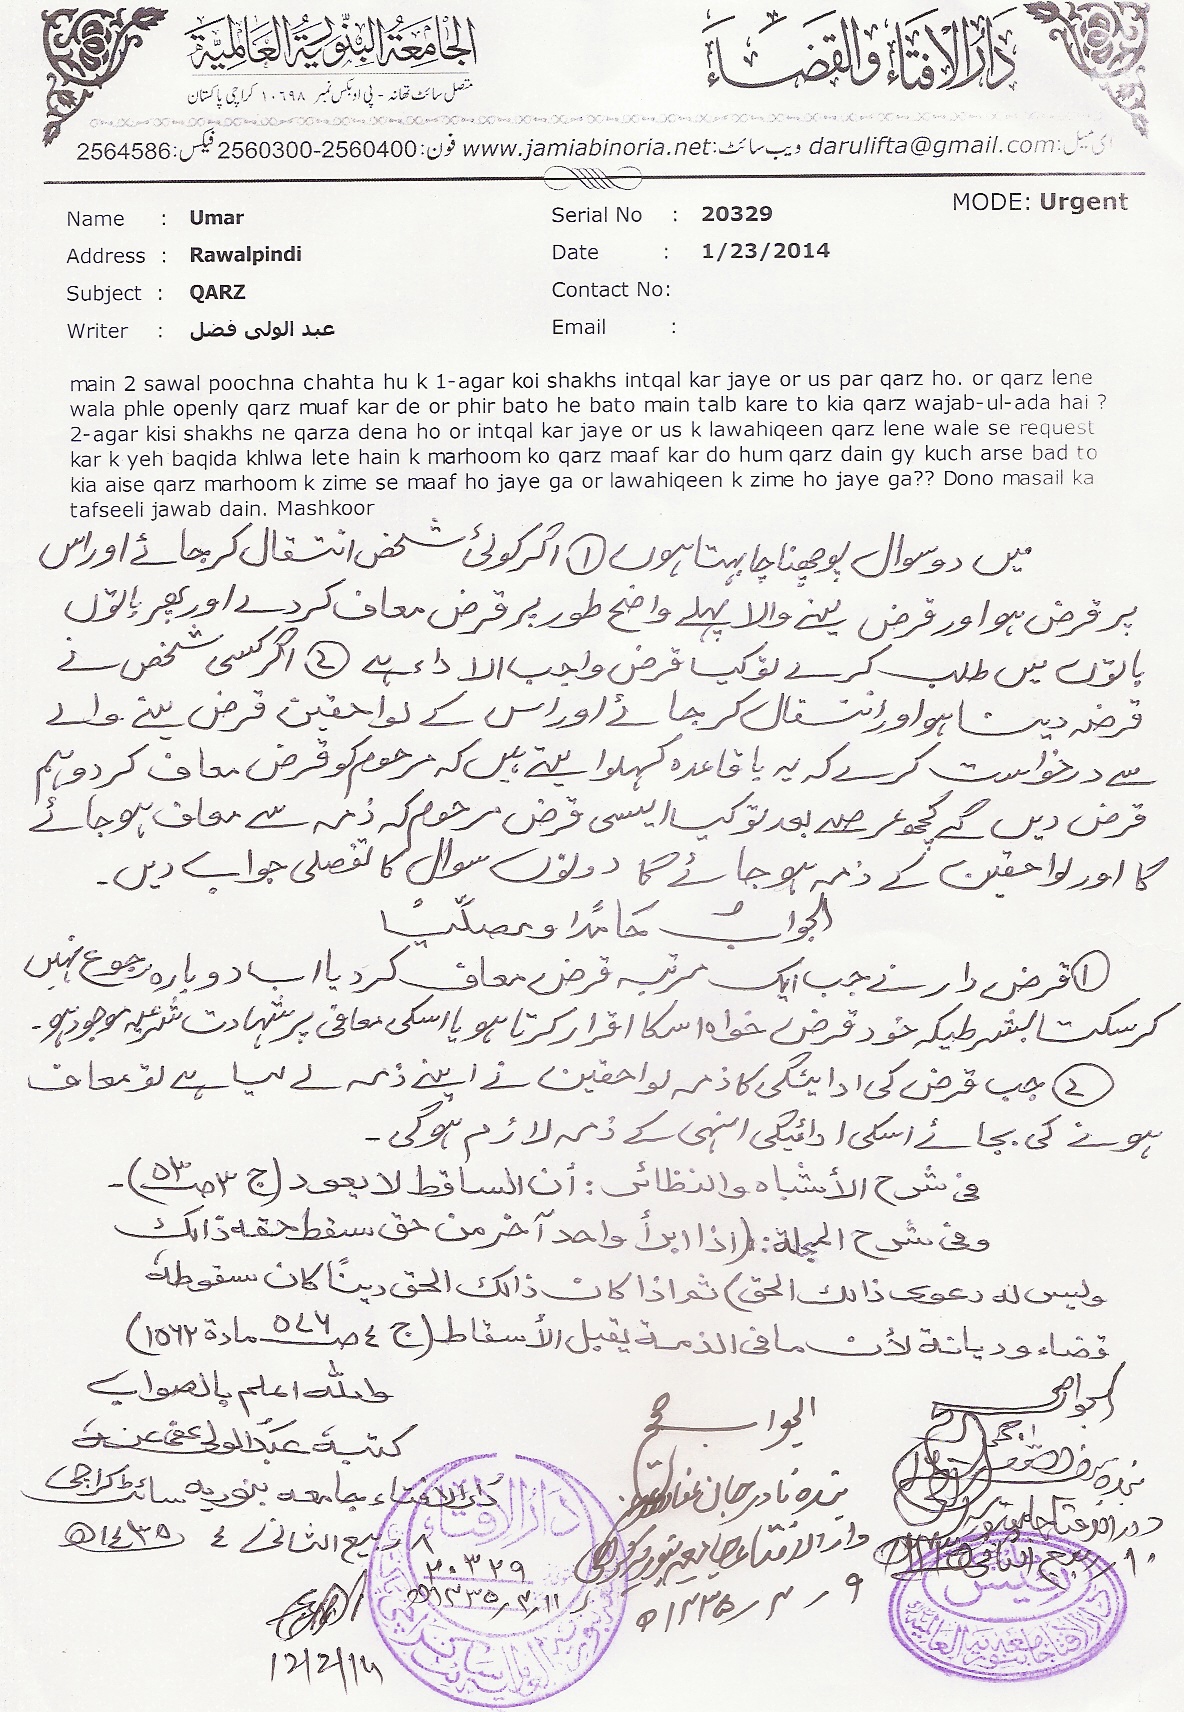 الجامعة البنورية العالمية
دار الافتاء والقضاء
متصل سائٹ تھانہ - پی او بکس نمبر ۱۰۶۹۸ کراچی پاکستان
ای میل: darulifta@gmail.com ویب سائٹ: www.jamiabinoria.net فون: 2560300-2560400 فیکس: 2564586
MODE: Urgent
Name : Umar Serial No : 20329
Address : Rawalpindi Date : 1/23/2014
Subject : QARZ Contact No:
Writer : عبد الولی فضل Email :
main 2 sawal poochna chahta hu k 1-agar koi shakhs intqal kar jaye or us par qarz ho. or qarz lene
wala phle openly qarz muaf kar de or phir bato he bato main talb kare to kia qarz wajab-ul-ada hai ?
2-agar kisi shakhs ne qarza dena ho or intqal kar jaye or us k lawahiqeen qarz lene wale se request
kar k yeh baqida khlwa lete hain k marhoom ko qarz maaf kar do hum qarz dain gy kuch arse bad to
kia aise qarz marhoom k zime se maaf ho jaye ga or lawahiqeen k zime ho jaye ga?? Dono masail ka
tafseeli jawab dain. Mashkoor
میں دو سوال پوچھنا چاہتا ہوں ① اگر کوئی شخص انتقال کر جائے اور اس
پر قرض ہو اور قرض لینے والا پہلے واضح طور پر قرض معاف کردے اور پھر باتوں
باتوں میں طلب کرے تو کیا قرض واجب الاداء ہے ② اگر کسی شخص نے
قرضہ دینا ہو اور انتقال کر جائے اور اس کے لواحقین قرض لینے والے
سے درخواست کرے کہ یہ باقاعدہ کہلوا لیتے ہیں کہ مرحوم کو قرض معاف کر دو ہم
قرض دیں گے کچھ عرصے بعد تو کیا ایسی قرض مرحوم کہ ذمہ سے معاف ہو جائے
گا اور لواحقین کے ذمہ ہو جائے گا دونوں سوال کا تفصلی جواب دیں۔
الجواب حامدًا و مصلّیًا
① قرض دار نے جب ایک مرتبہ قرض معاف کر دیا اب دوبارہ رجوع نہیں
کر سکتا بشرطیکہ خود قرض خواہ اسکا اقرار کرتا ہو یا اسکی معافی پر شہادت شرعیہ موجود ہو۔
② جب قرض کی ادائیگی کا ذمہ لواحقین نے اپنے ذمہ لے لیا ہے تو معاف
ہونے کی بجائے اسکی ادائیگی انہی کے ذمہ لازم ہوگی۔
فی شرح الأشباہ والنظائر: أن الساقط لا یعود (ج ۳ صـ ۵۳)۔
وفی شرح المجلة: (اذا ابرأ واحد آخر من حق سقط حقه ذالک
ولیس له دعوی ذالک الحق) ثم اذا کان ذالک الحق دینًا کان سقوطه
قضاء و دیانة لأن ما فی الذمة یقبل الأسقاط (ج ٤ صـ ۵۷۶ مادة ۱۵۶۲)
واللہ اعلم بالصواب
کتبہ عبدالولی عفی عنہ
دارالافتاء جامعہ بنوریہ سائٹ کراچی
۸ ربیع الثانی ٤ ۱٤۳۵ھ
الجواب صحیح
بندہ نادر جان
دارالافتاء جامعہ بنوریہ کراچی
۹ ر ۴ ر ۱۴۳۵ھ
الجواب صحیح
دارالافتاء جامعہ بنوریہ
۱۰ ربیع الثانی
دار الافتاء
۲۰۳۲۹
۱۱ ر ۴ ر ۱۴۳۵ھ
رئیس
دار الافتاء جامعہ بنوریہ العالمیہ
12/2/14